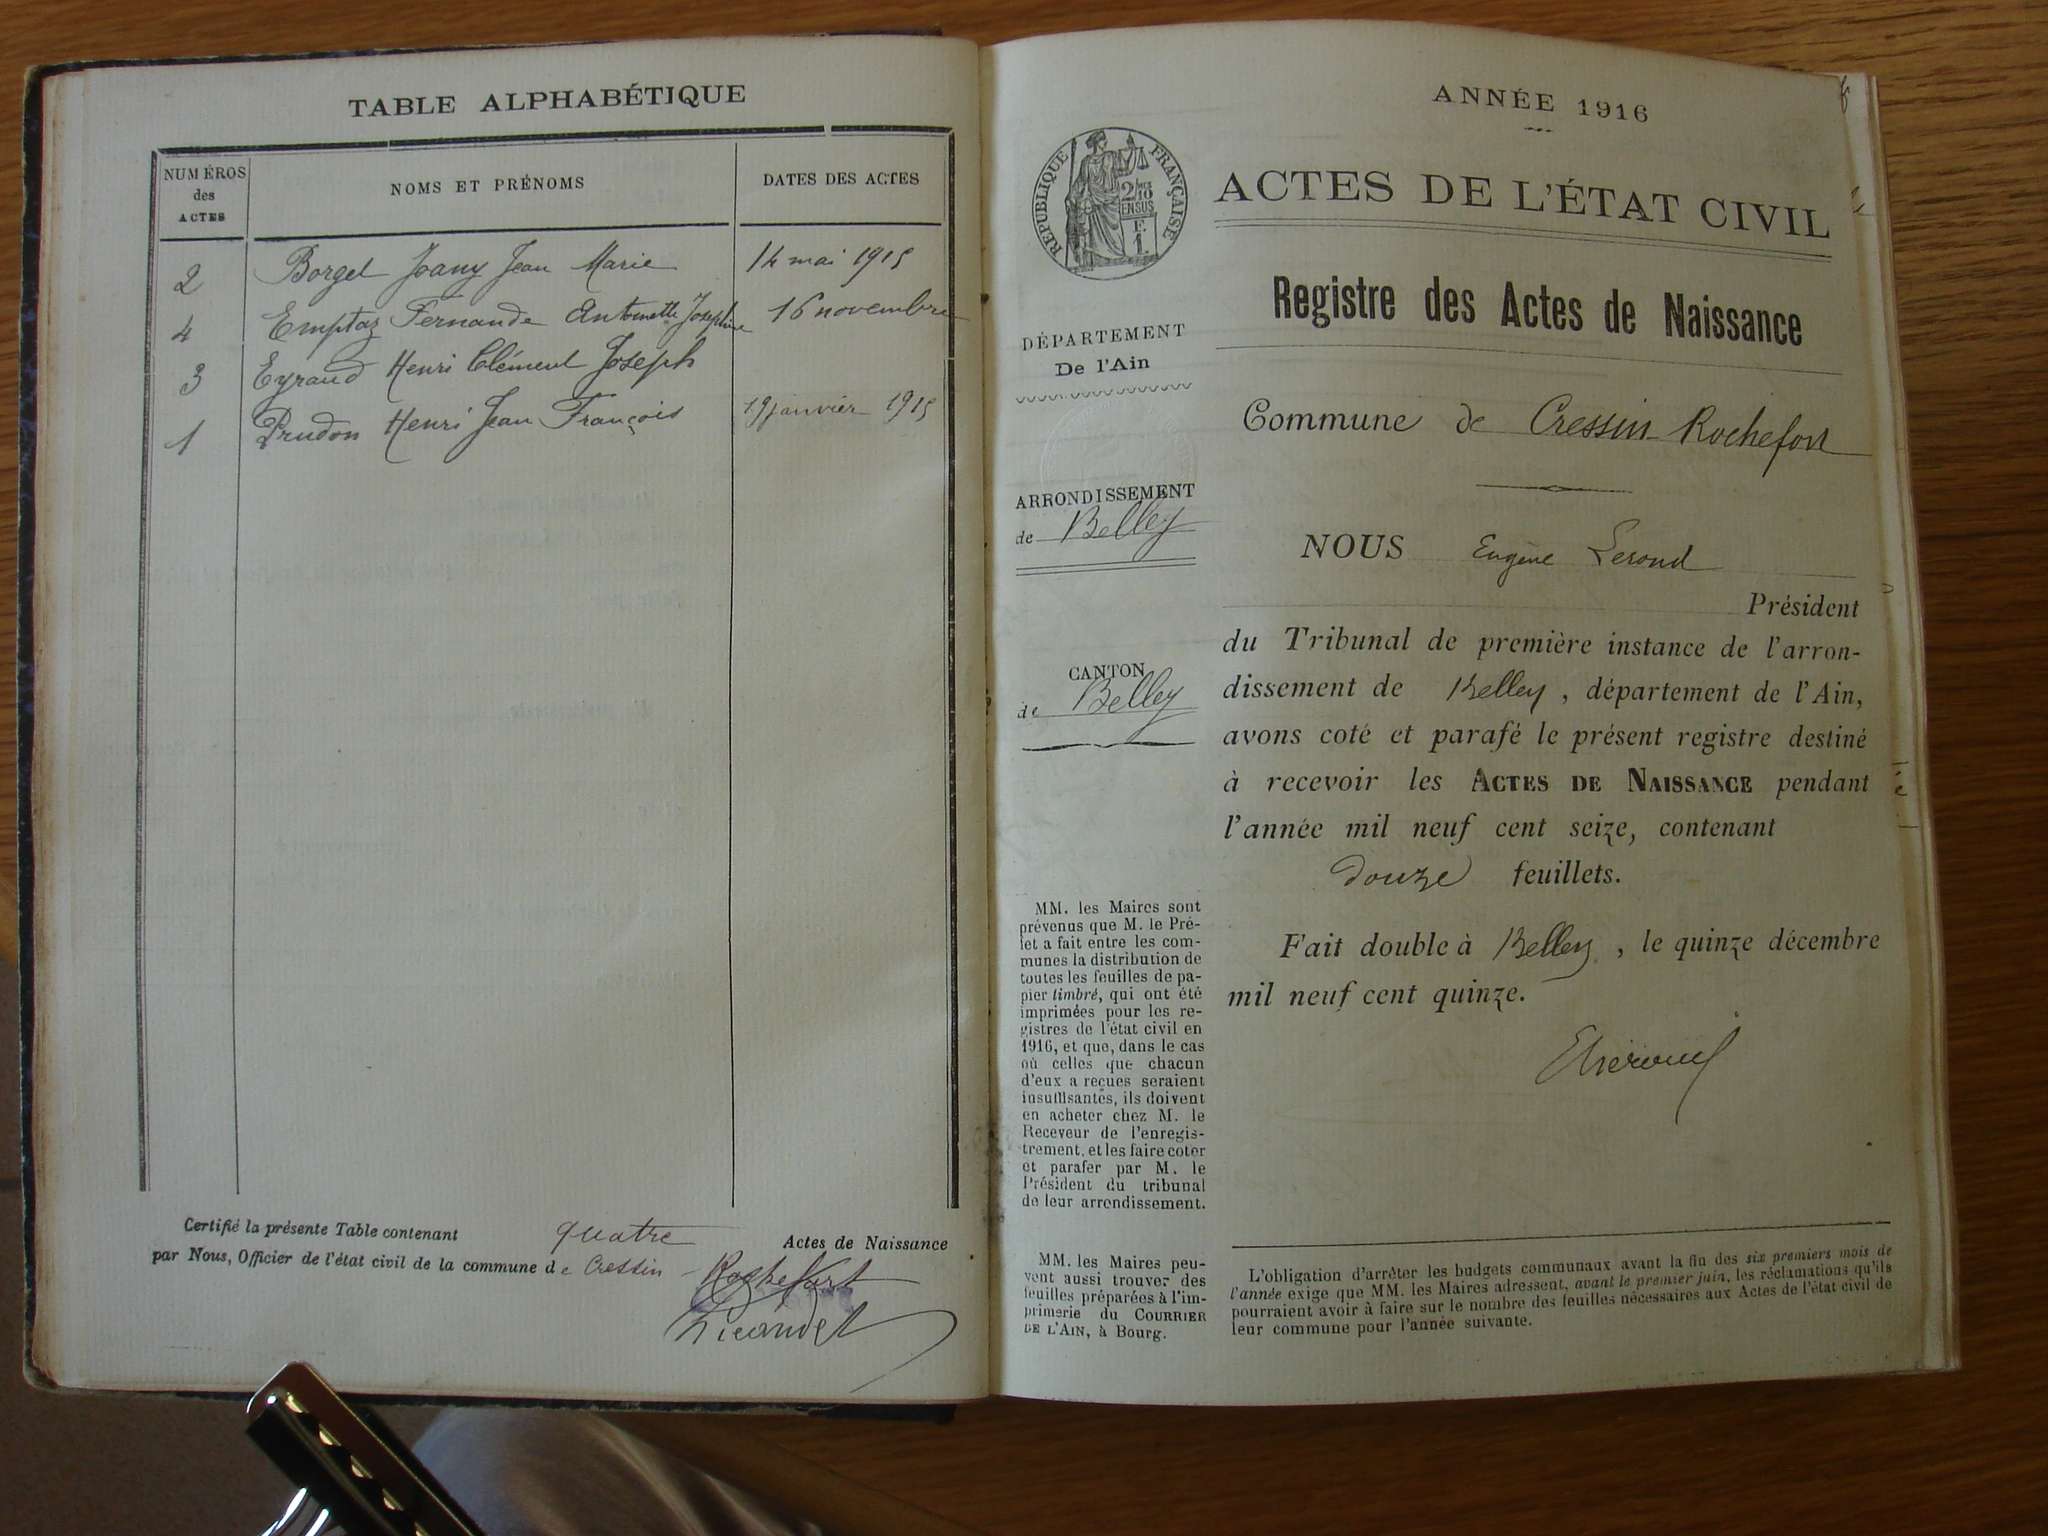 TABLE ALPHABÉTIQUE
NUMÉROS
des
ACTES
NOMS ET PRÉNOMS
DATES DES ACTES
2 Borgel Joany Jean Marie 14 mai 1915
4 Emptaz Fernande Antoinette Joséphine 16 novembre
3 Eyraud Henri Clément Joseph
1 Prudon Henri Jean François 19 janvier 1915
Certifié la présente Table contenant quatre Actes de Naissance
par Nous, Officier de l'état civil de la commune de Cressin - Rochefort
ANNÉE 1916
RÉPUBLIQUE FRANÇAISE
2/10
EN SUS
F.
1.
ACTES DE L'ÉTAT CIVIL
Registre des Actes de Naissance
DÉPARTEMENT
De l'Ain
Commune de Cressin Rochefort
ARRONDISSEMENT
de Belley
NOUS Eugène Lerond
Président
du Tribunal de première instance de l'arron-
dissement de Belley, département de l'Ain,
avons coté et parafé le présent registre destiné
à recevoir les ACTES DE NAISSANCE pendant
l'année mil neuf cent seize, contenant
douze feuillets.
Fait double à Belley, le quinze décembre
mil neuf cent quinze.
CANTON
de Belley
MM. les Maires sont
prévenus que M. le Pré-
fet a fait entre les com-
munes la distribution de
toutes les feuilles de pa-
pier timbré, qui ont été
imprimées pour les re-
gistres de l'état civil en
1916, et que, dans le cas
où celles que chacun
d'eux a reçues seraient
insuffisantes, ils doivent
en acheter chez M. le
Receveur de l'enregis-
trement, et les faire coter
et parafer par M. le
Président du tribunal
de leur arrondissement.
MM. les Maires peu-
vent aussi trouver des
feuilles préparées à l'im-
primerie du COURRIER
DE L'AIN, à Bourg.
L'obligation d'arrêter les budgets communaux avant la fin des six premiers mois de
l'année exige que MM. les Maires adressent, avant le premier juin, les réclamations qu'ils
pourraient avoir à faire sur le nombre des feuilles nécessaires aux Actes de l'état civil de
leur commune pour l'année suivante.